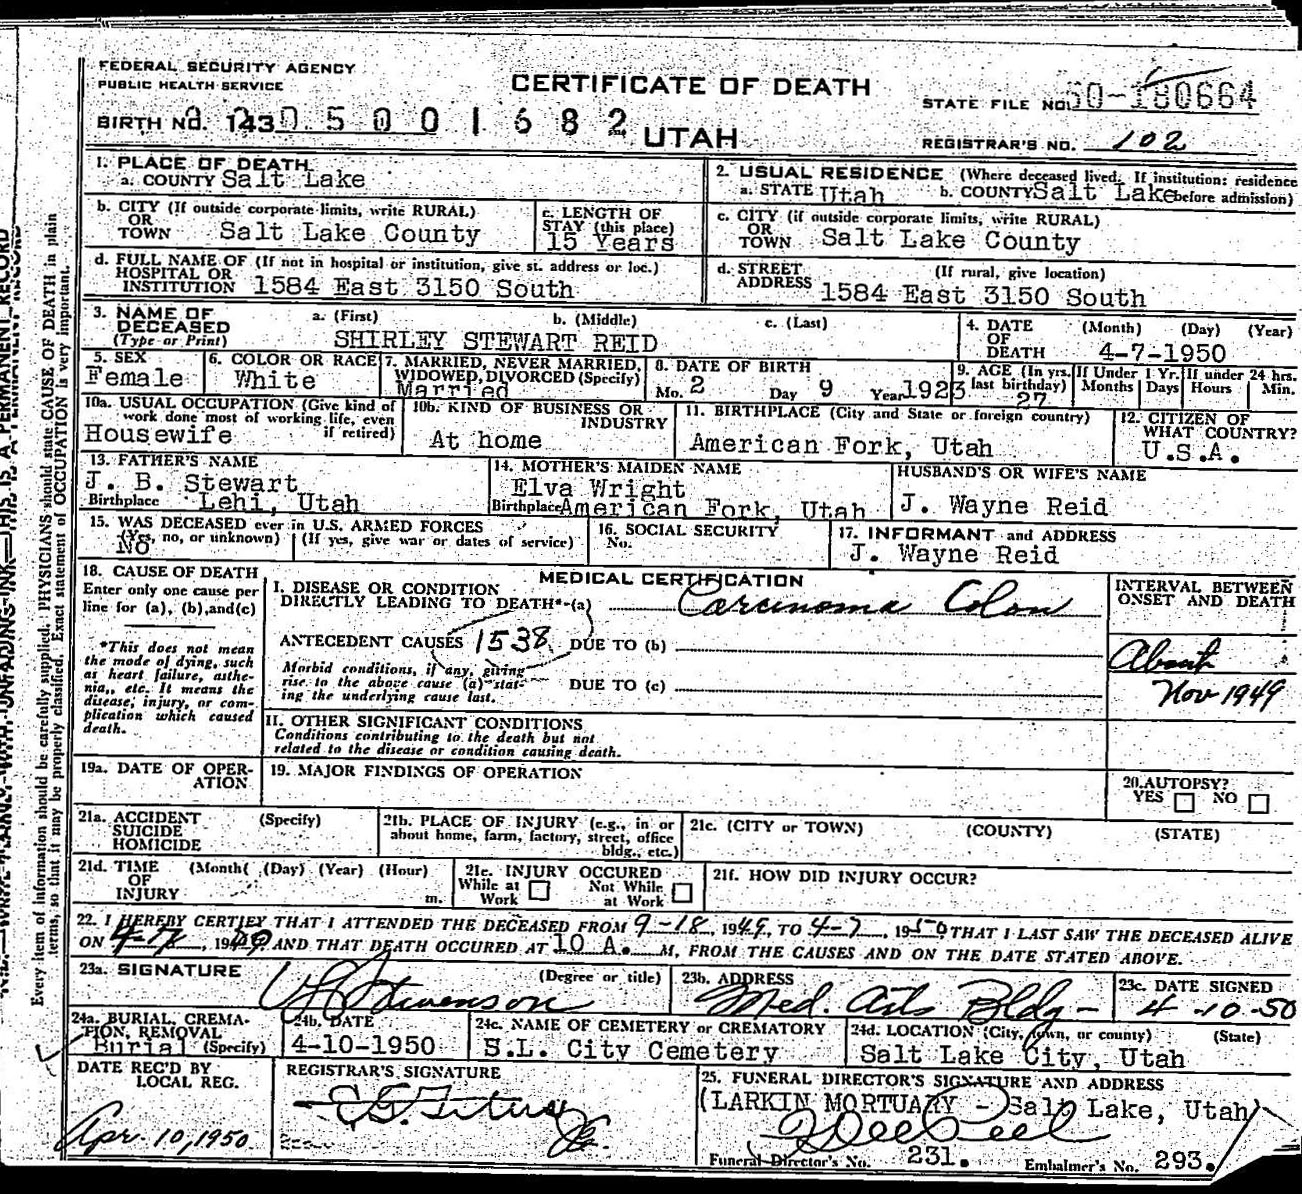 FEDERAL SECURITY AGENCY
PUBLIC HEALTH SERVICE
CERTIFICATE OF DEATH
STATE FILE NO. 50-180664
BIRTH NO. 143 0 5 0 0 1 6 8 2
UTAH
REGISTRAR'S NO. 102
1. PLACE OF DEATH
a. COUNTY Salt Lake
2. USUAL RESIDENCE (Where deceased lived. If institution: residence
a. STATE Utah b. COUNTY Salt Lake before admission)
b. CITY (If outside corporate limits, write RURAL)
OR
TOWN Salt Lake County
c. LENGTH OF
STAY (this place)
15 Years
c. CITY (if outside corporate limits, write RURAL)
OR
TOWN Salt Lake County
d. FULL NAME OF (If not in hospital or institution, give st. address or loc.)
HOSPITAL OR
INSTITUTION 1584 East 3150 South
d. STREET (If rural, give location)
ADDRESS 1584 East 3150 South
3. NAME OF a. (First) b. (Middle) c. (Last)
DECEASED
(Type or Print) SHIRLEY STEWART REID
4. DATE (Month) (Day) (Year)
OF
DEATH 4-7-1950
5. SEX
Female
6. COLOR OR RACE
White
7. MARRIED, NEVER MARRIED,
WIDOWED, DIVORCED (Specify)
Married
8. DATE OF BIRTH
Mo. 2 Day 9 Year 1923
9. AGE (In yrs.
last birthday)
27
If Under 1 Yr.
Months Days
If under 24 hrs.
Hours Min.
10a. USUAL OCCUPATION (Give kind of
work done most of working life, even
if retired)
Housewife
10b. KIND OF BUSINESS OR
INDUSTRY
At home
11. BIRTHPLACE (City and State or foreign country)
American Fork, Utah
12. CITIZEN OF
WHAT COUNTRY?
U.S.A.
13. FATHER'S NAME
J. B. Stewart
Birthplace Lehi, Utah
14. MOTHER'S MAIDEN NAME
Elva Wright
Birthplace American Fork, Utah
HUSBAND'S OR WIFE'S NAME
J. Wayne Reid
15. WAS DECEASED ever in U.S. ARMED FORCES
(Yes, no, or unknown) (If yes, give war or dates of service)
No
16. SOCIAL SECURITY
No.
17. INFORMANT and ADDRESS
J. Wayne Reid
18. CAUSE OF DEATH
Enter only one cause per
line for (a), (b),and(c)
*This does not mean
the mode of dying, such
as heart failure, asthe-
nia,, etc. It means the
disease, injury, or com-
plication which caused
death.
MEDICAL CERTIFICATION
I. DISEASE OR CONDITION
DIRECTLY LEADING TO DEATH*-(a) Carcinoma Colon
ANTECEDENT CAUSES 1538 DUE TO (b)
Morbid conditions, if any, giving
rise to the above cause (a) stat-
ing the underlying cause last.
DUE TO (c)
II. OTHER SIGNIFICANT CONDITIONS
Conditions contributing to the death but not
related to the disease or condition causing death.
INTERVAL BETWEEN
ONSET AND DEATH
About
Nov 1949
19a. DATE OF OPER-
ATION
19. MAJOR FINDINGS OF OPERATION
20. AUTOPSY?
YES NO
21a. ACCIDENT (Specify)
SUICIDE
HOMICIDE
21b. PLACE OF INJURY (e.g., in or
about home, farm, factory, street, office
bldg., etc.)
21c. (CITY or TOWN) (COUNTY) (STATE)
21d. TIME (Month( (Day) (Year) (Hour)
OF
INJURY m.
21e. INJURY OCCURED
While at Work Not While at Work
21f. HOW DID INJURY OCCUR?
22. I HEREBY CERTIFY THAT I ATTENDED THE DECEASED FROM 9-18, 1949, TO 4-7, 1950 THAT I LAST SAW THE DECEASED ALIVE
ON , 19 AND THAT DEATH OCCURED AT 10 A. M, FROM THE CAUSES AND ON THE DATE STATED ABOVE.
23a. SIGNATURE (Degree or title)
Stevenson
23b. ADDRESS
Med. Arts Bldg-
23c. DATE SIGNED
4-10-50
24a. BURIAL, CREMA-
TION, REMOVAL
Burial (Specify)
24b. DATE
4-10-1950
24c. NAME OF CEMETERY or CREMATORY
S.L. City Cemetery
24d. LOCATION (City, town, or county) (State)
Salt Lake City, Utah
DATE REC'D BY
LOCAL REG.
Apr. 10, 1950
REGISTRAR'S SIGNATURE
25. FUNERAL DIRECTOR'S SIGNATURE AND ADDRESS
(LARKIN MORTUARY - Salt Lake, Utah)
Funeral Director's No. 231. Embalmer's No. 293.
Every item of information should be carefully supplied. PHYSICIANS should state CAUSE OF DEATH in plain
terms, so that it may be properly classified. Exact statement of OCCUPATION is very important.